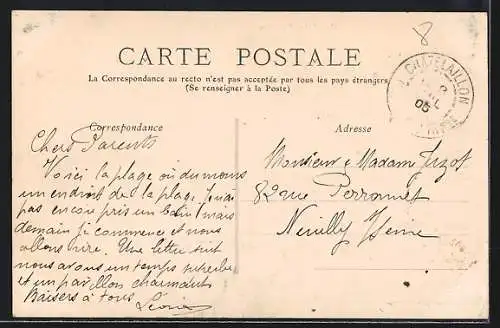 8
CARTE POSTALE
La Correspondance au recto n'est pas acceptée par tous les pays étrangers
(Se renseigner à la Poste)
CHATELAILLON
05
Correspondance
Chers Parents
Voici la plage où du moins
un endroit de la plage. J'ai
pas encore pris un bain mais
demain je commence et nous
allons rire. Une lettre suit
nous avons un temps superbe
et un pavillon charmant
Baisers à tous
Adresse
Monsieur & Madame
82 rue Perronnet
Neuilly s/ Seine